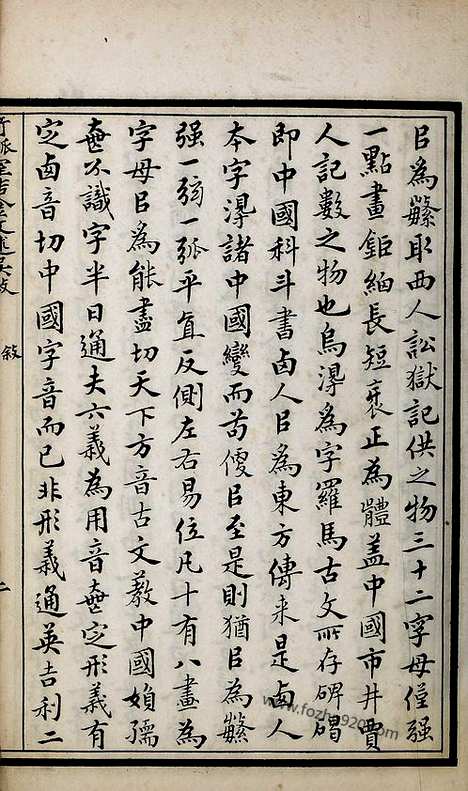 㠯為䌓取西人訟獄記供之物三十二字母僅强
一點畫鉅細長短衺正為體盖中國市井賈
人記數之物也烏淂為字羅馬古文所存碑碣
即中國科斗書卤人㠯為東方傳来是卤人
本字淂諸中國變而苟㑯㠯至是則猶㠯為䌓
强一弱一弧平直反側左右易位凡十有八畫為
字母㠯為能盡切天下方音古文敎中國嬇孺
壺不識字半日通夫六義為用音壺定形義有
定卤音切中國字音而已非形義通英吉利二
敘
二
www.fozhu920.com